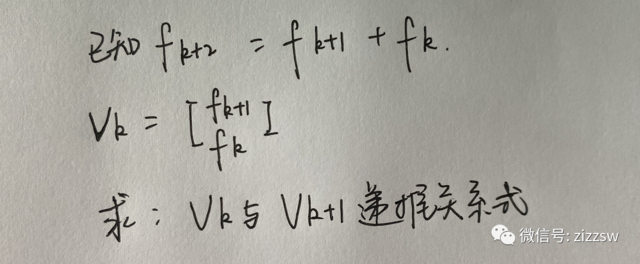 已知 fk+2 = fk+1 + fk.
Vk = [fk+1
fk]
求: Vk与 Vk+1 递推关系式
微信号: zizzsw